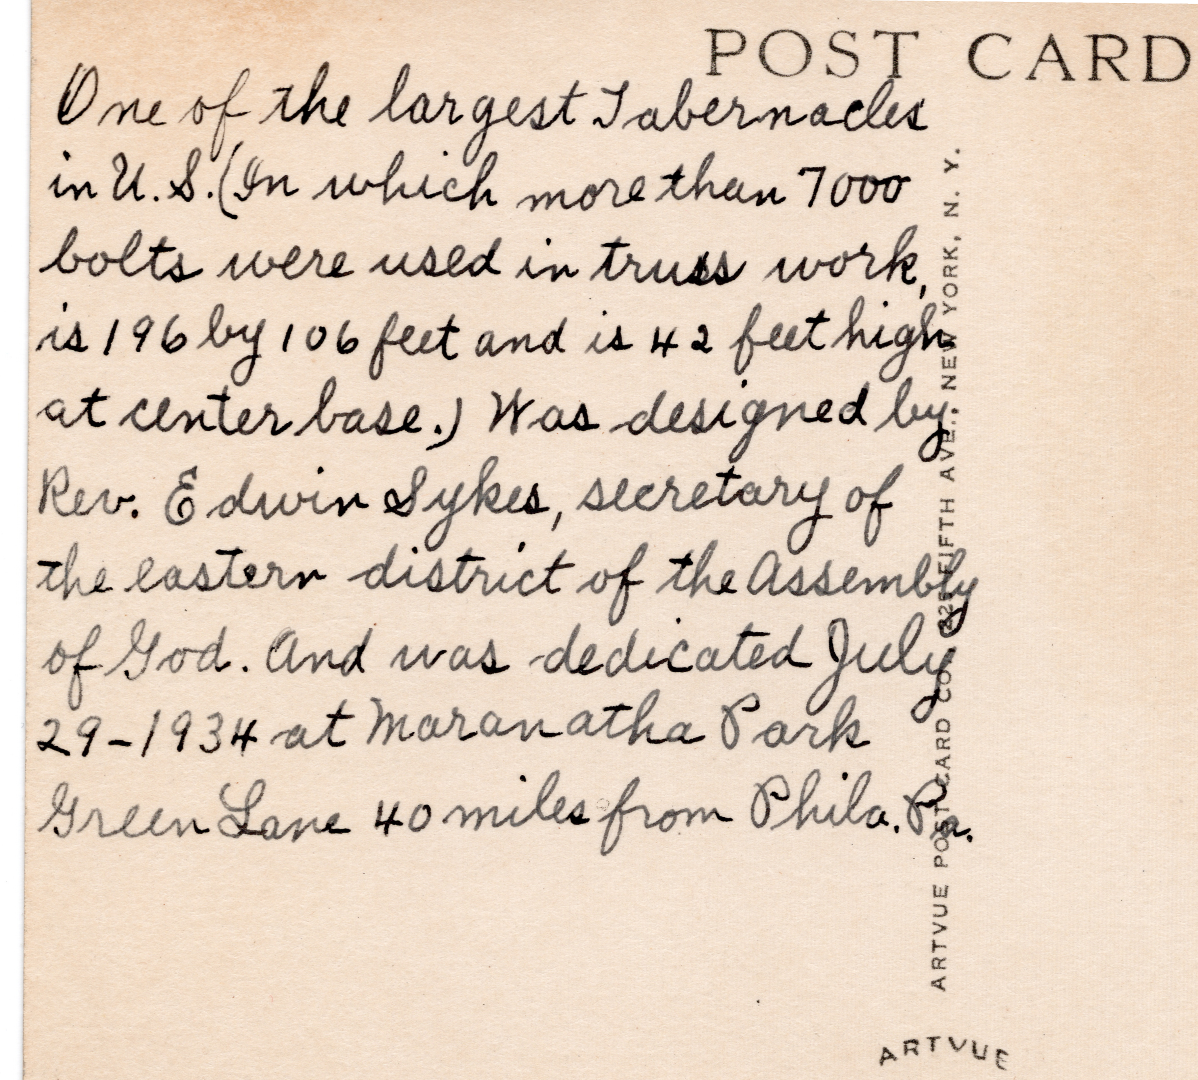 POST CARD
One of the largest Tabernacles
in U.S. (In which more than 7000
bolts were used in truss work,
is 196 by 106 feet and is 42 feet high
at center base.) Was designed by
Rev. Edwin Sykes, secretary of
the eastern district of the Assembly
of God. And was dedicated July
29-1934 at Maranatha Park
Green Lane 40 miles from Phila. Pa.
ARTVUE POST CARD CO. 225 FIFTH AVE., NEW YORK, N. Y.
ARTVUE